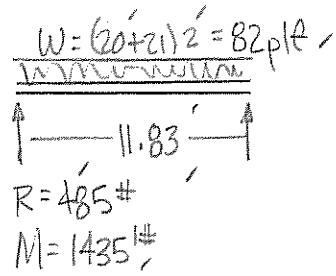 W = (20+21)2' = 82plf
11.83'
R = 485#
M = 1435'#